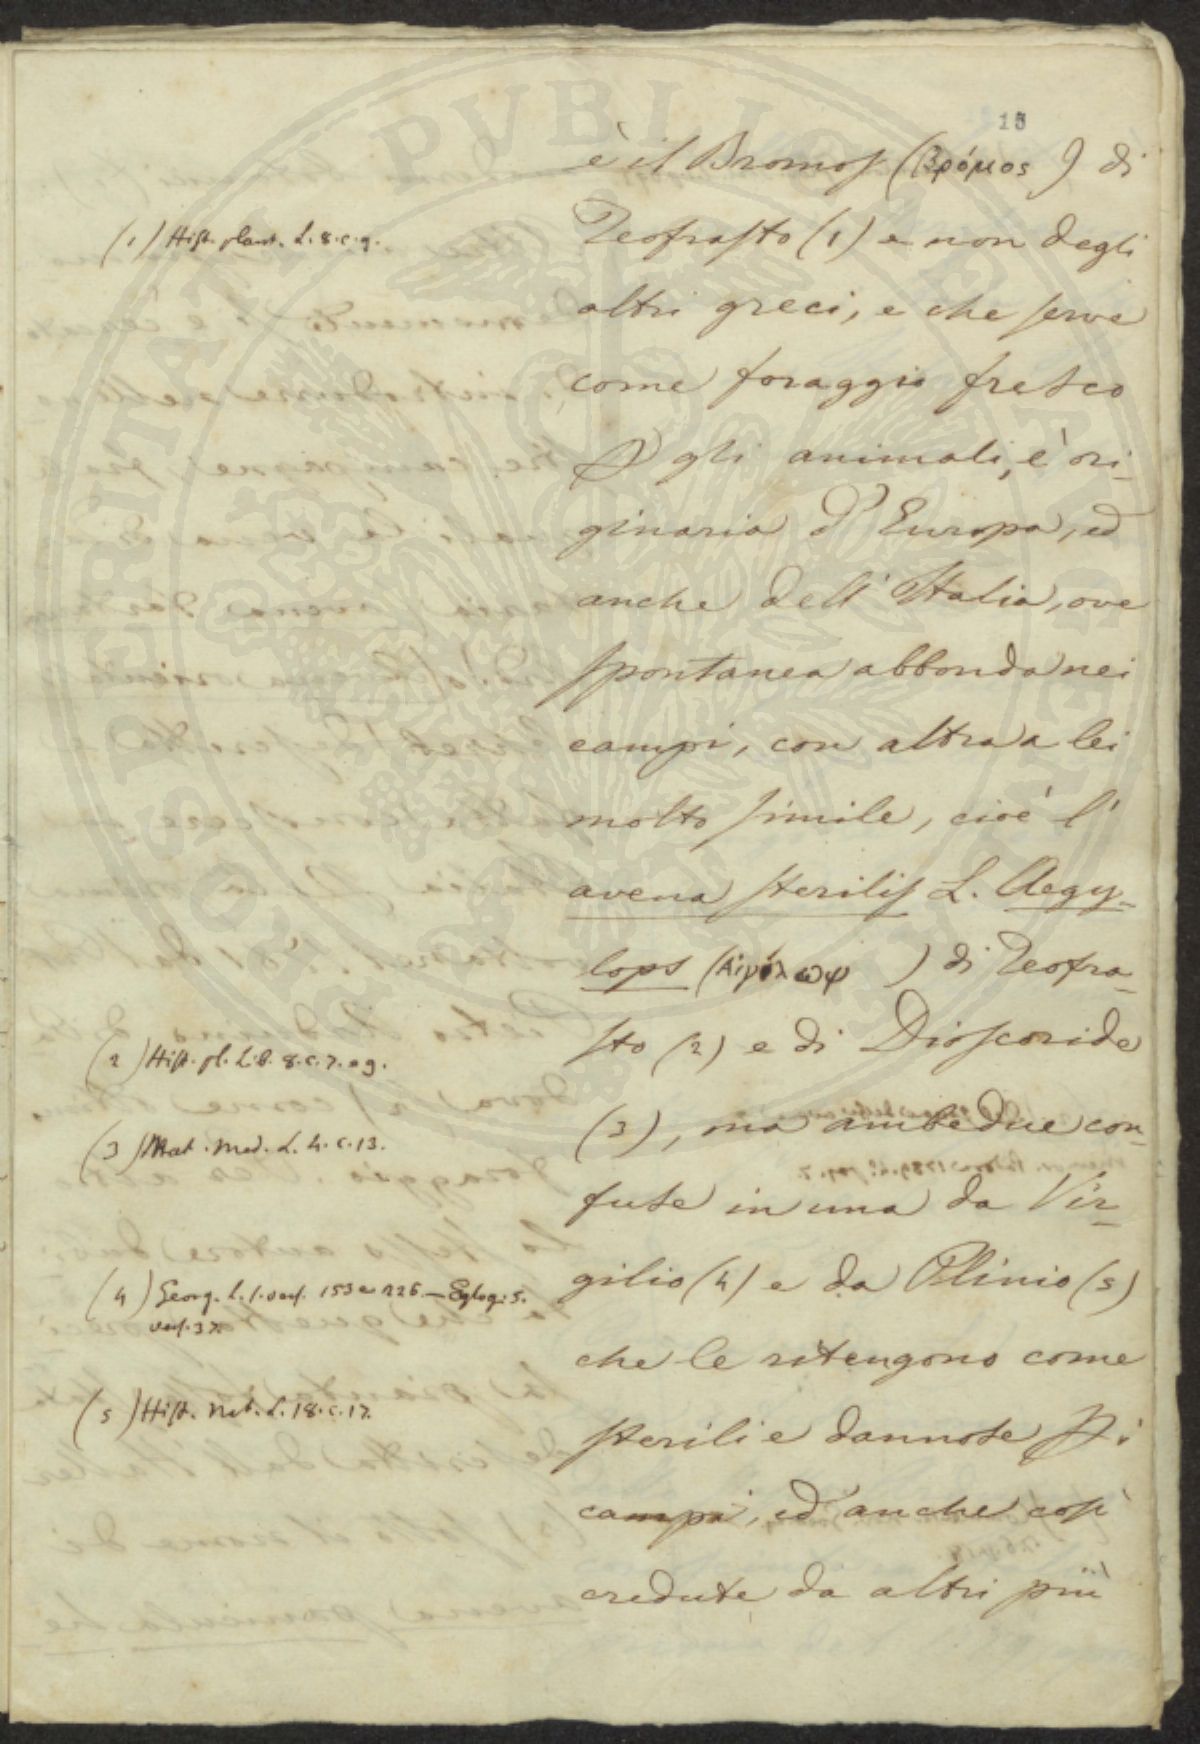 15
è il Bromos (Βρόμος ) di
Teofrasto (1) e non degli
altri greci, e che serve
come foraggio fresco
gli animali, è ori-
ginaria d'Europa, ed
anche dell'Italia, ove
spontanea abbonda nei
campi, con altra a lei
molto simile, cioè l'
avena sterilis L. Aegy-
lops (Αἰγόλωψ ) di Teofra-
sto (2) e di Dioscoride
(3), ma ambedue con-
fuse in una da Vir-
gilio (4) e da Plinio (5)
che le ritengono come
sterili e dannose
campi, ed anche così
credute da altri più
(1) Hist. plant. L. 8. c. 9.
(2) Hist. pl. Lib. 8. c. 7. e 9.
(3) Mat. Med. L. 4. c. 13.
(4) Georg. L. 1. vers. 153 e 226. — Eglog. 5.
vers. 37.
(5) Hist. Nat. L. 18. c. 17.
PROSPERITATI PVBLICAE AVGENDAE